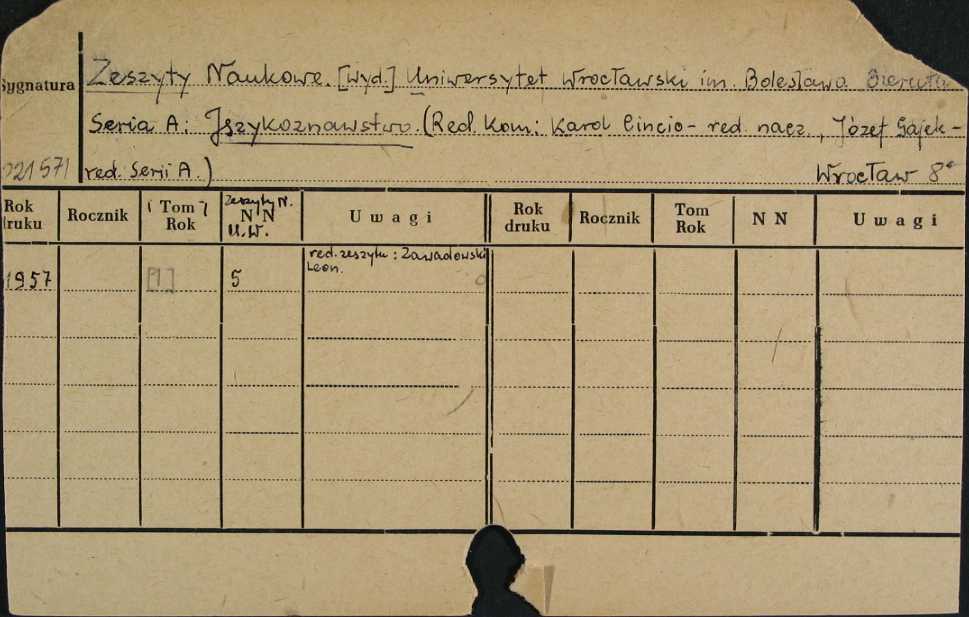 Sygnatura
Zeszyty Naukowe. [Wyd.] Uniwersytet Wrocławski im. Bolesława Bieruta
Seria A: Językoznawstwo. (Red. Kom: Karol Cincio - red. nacz., Józef Gajek -
021571 red. Serii A.) Wrocław 8°
Rok druku Rocznik Tom Rok Zeszyty N. NN U.W. Uwagi Rok druku Rocznik Tom Rok NN Uwagi
red. zeszytu: Zawadowski
Leon.
1957 [1] 5